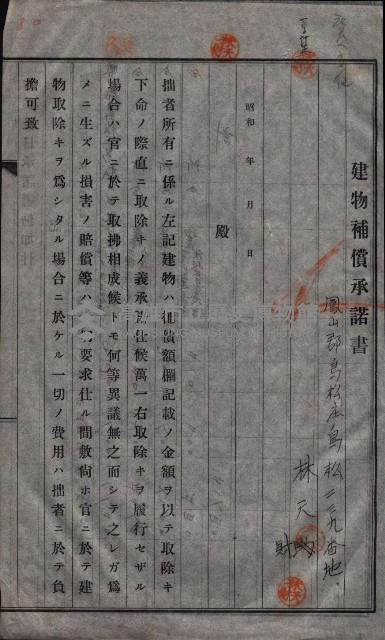 建物補償承諾書
鳳山郡鳥松庄鳥松二三九番地
林天財
昭和　年　月　日
殿
拙者所有ニ係ル左記建物ハ補償額欄記載ノ金額ヲ以テ取除キ
下命ノ際直ニ取除キノ義承諾仕候萬一右取除キヲ履行セザル
場合ハ官ニ於テ取拂相成候トモ何等異議無之而シテ之レガ爲
メニ生ズル損害ノ賠償等ハ一切要求仕ル間敷尚ホ官ニ於テ建
物取除キヲ爲シタル場合ニ於ケル一切ノ費用ハ拙者ニ於テ負
擔可致